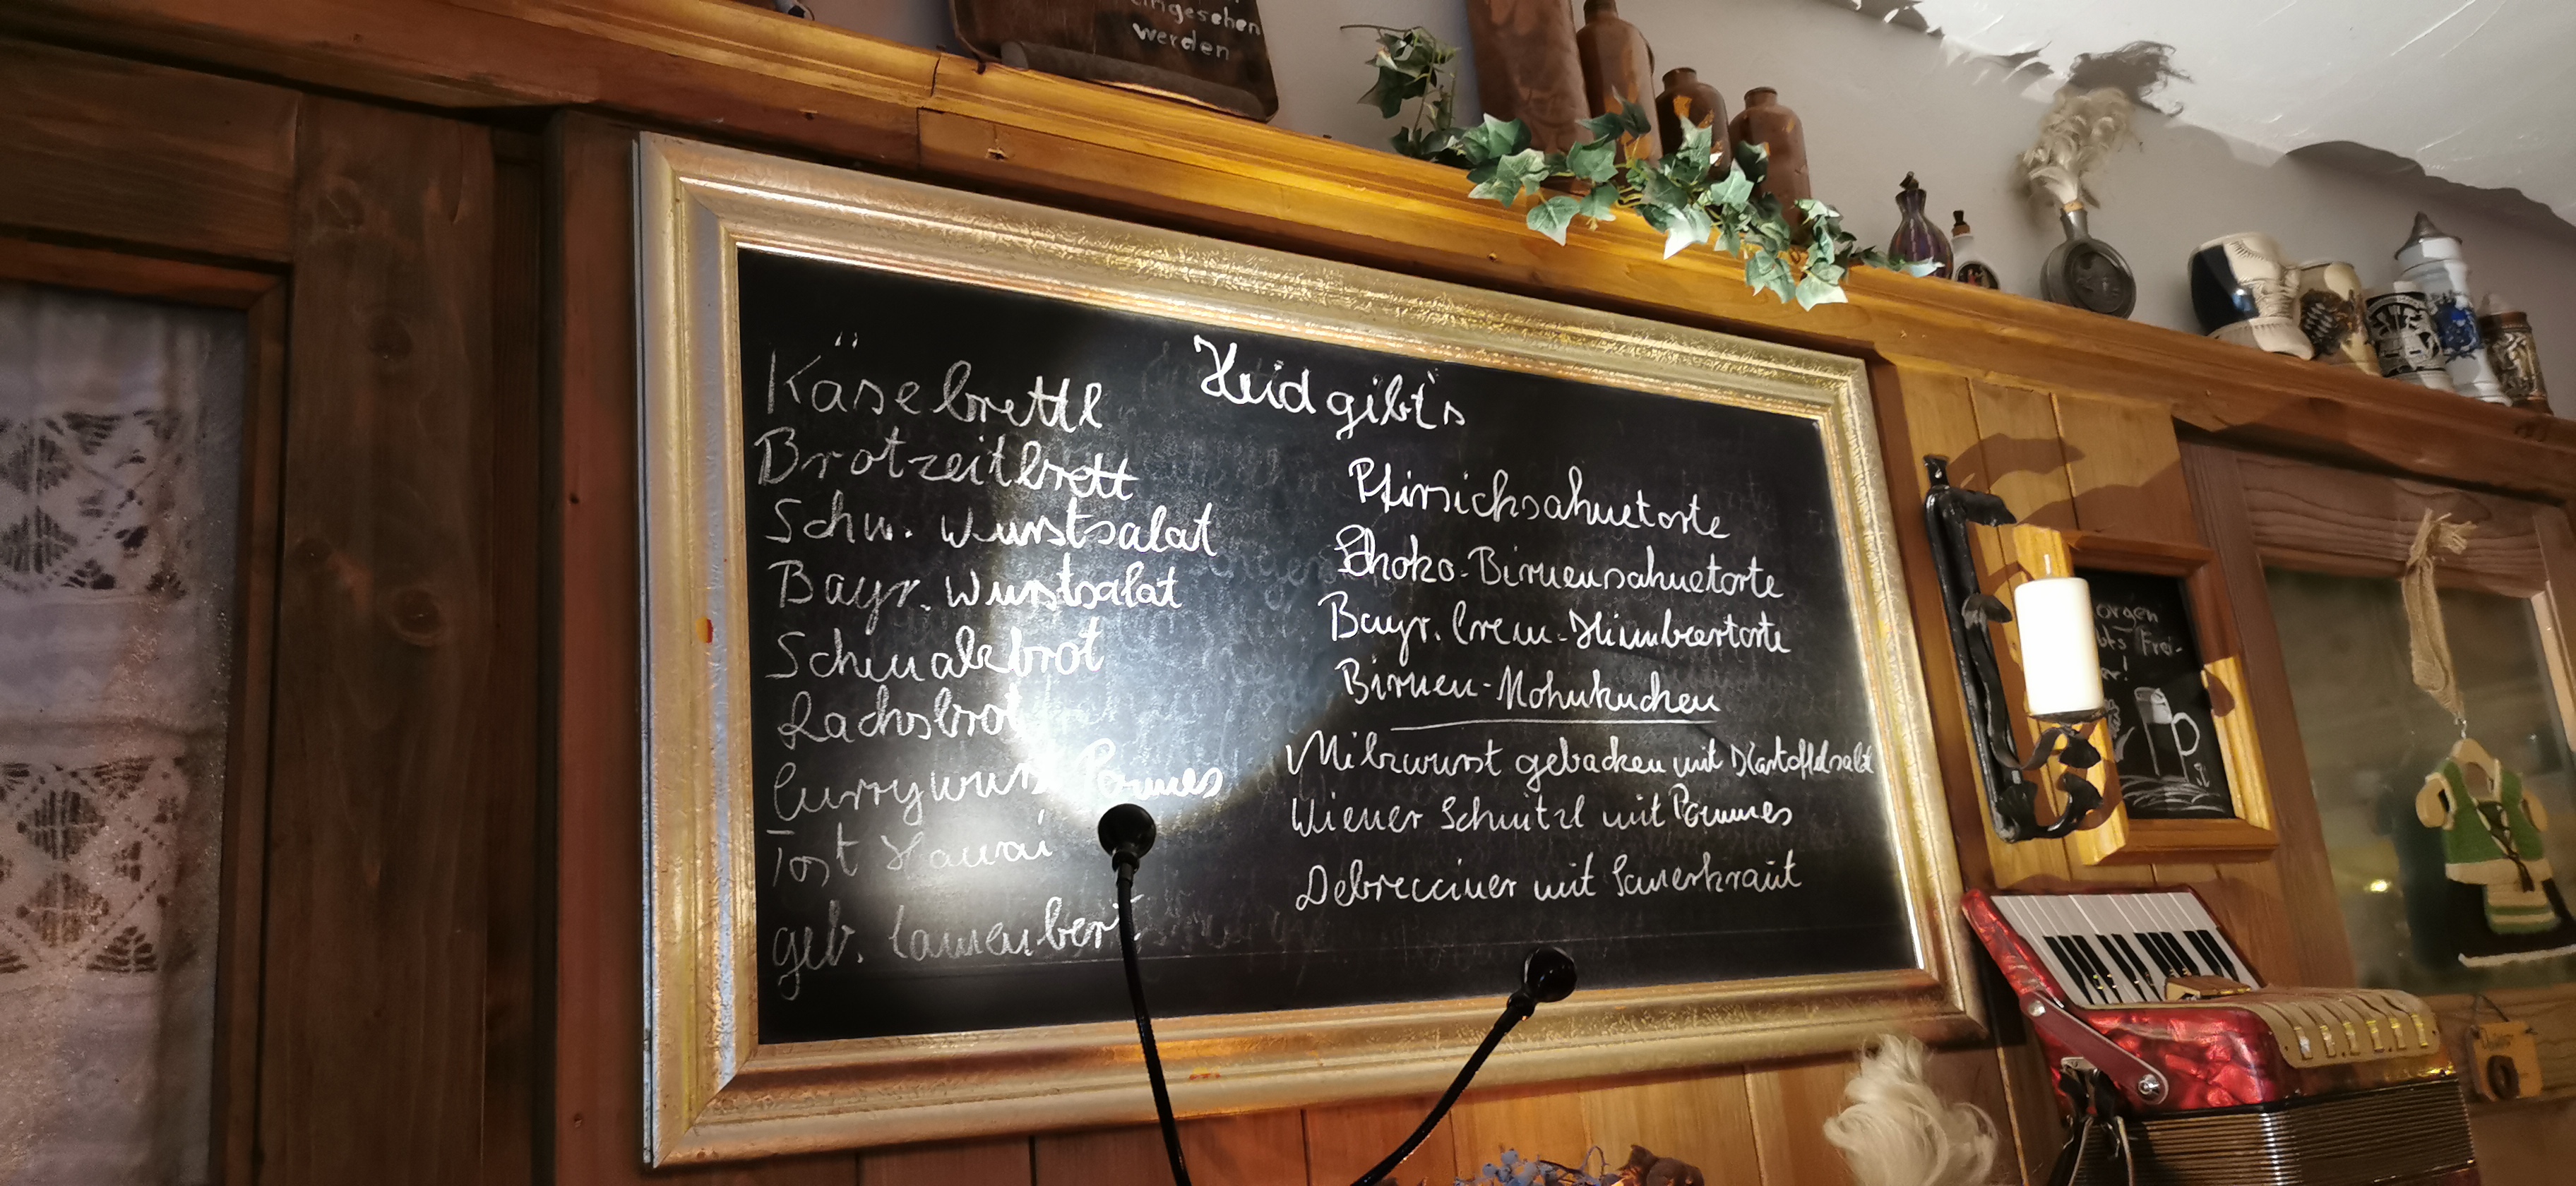 eingesehen
werden
Heid gibt's
Käsebrettl
Brotzeitbrett
Schw. Wurstsalat
Bayr. Wurstsalat
Schmalzbrot
Lachsbrot
Currywurst Pommes
Tost Hawai
geb. Camenbert
Pfirsichsahnetorte
Schoko-Birnensahnetorte
Bayr. Crem-Himbeertorte
Birnen-Mohnkuchen
Milzwurst gebacken mit Kartoffelsalt
Wiener Schnitzl mit Pommes
Debrecciner mit Sauerkraut
orgen
bts Frei-
er!